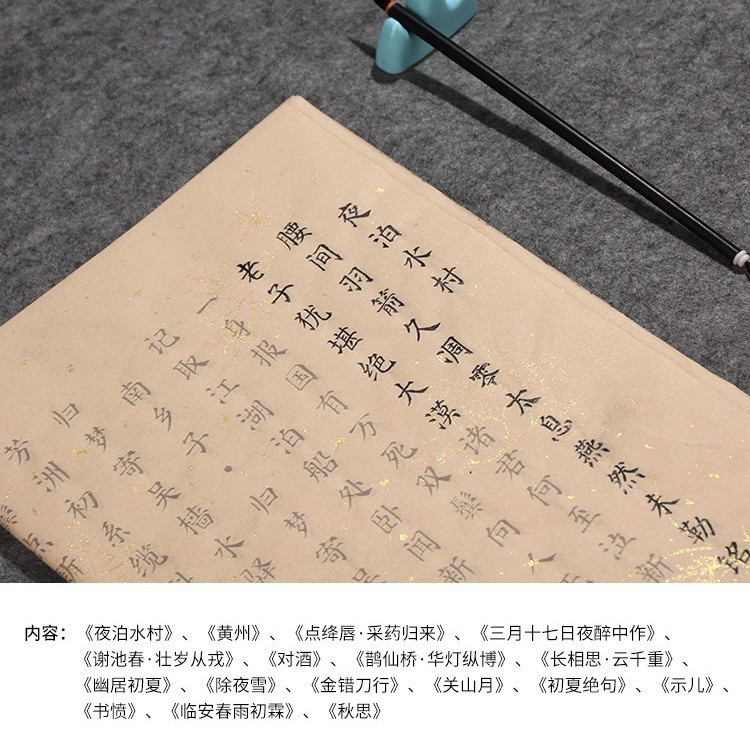 夜泊水村
腰间羽箭久凋零太息燕然未勒铭
老子犹堪绝大漠诸君何至泣新
一身报国有万死双鬓向人
记取江湖泊船处卧闻新
南乡子·归梦寄吴
归梦寄吴樯水驿
芳洲初系缆
内容：《夜泊水村》、《黄州》、《点绛唇·采药归来》、《三月十七日夜醉中作》、
《谢池春·壮岁从戎》、《对酒》、《鹊仙桥·华灯纵博》、《长相思·云千重》、
《幽居初夏》、《除夜雪》、《金错刀行》、《关山月》、《初夏绝句》、《示儿》、
《书愤》、《临安春雨初霖》、《秋思》